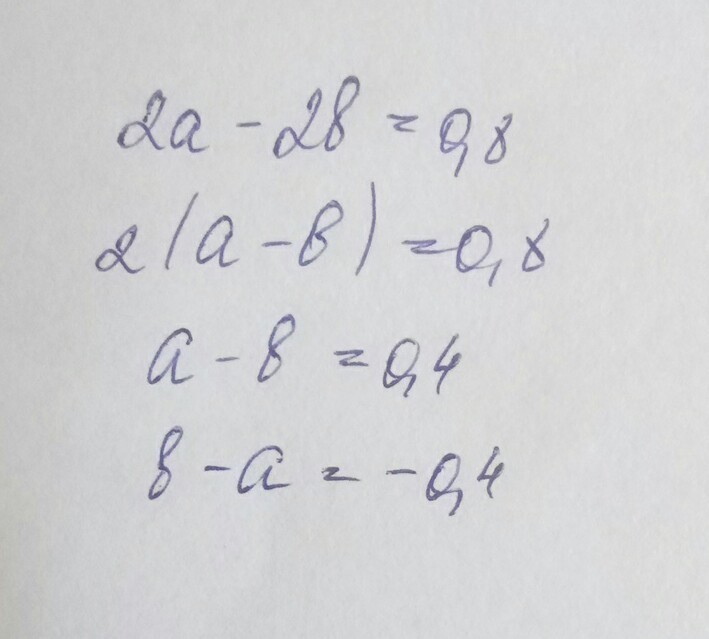 2a - 2b = 0,8
2(a - b) = 0,8
a - b = 0,4
b - a = -0,4